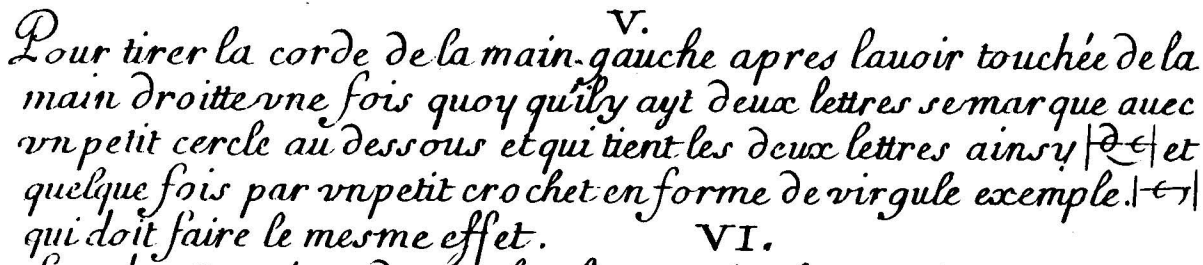 V.
Pour tirer la corde de la main gauche apres lauoir touchée de la
main droitte vne fois quoy qu'ily ayt deux lettres se marque auec
vn petit cercle au dessous et qui tient les deux lettres ainsy |d e| et
quelque fois par vn petit crochet en forme de virgule exemple. |e|
qui doit faire le mesme effet. VI.